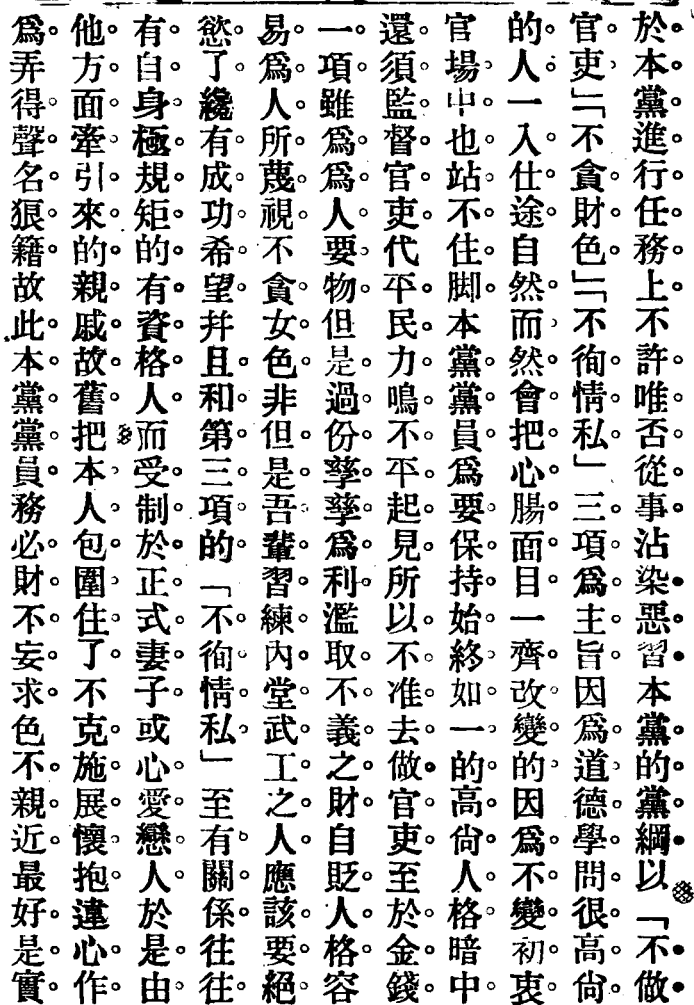 於本黨進行任務上不許唯否從事沾染惡習本黨的黨綱以「不做
官吏」「不貪財色」「不徇情私」三項爲主旨因爲道德學問很高尙
的人一入仕途自然而然會把心腸面目一齊改變的因爲不變初衷
官場中也站不住脚本黨黨員爲要保持始終如一的高尙人格暗中
還須監督官吏代平民力鳴不平起見所以不准去做官吏至於金錢
一項雖爲爲人要物但是過份孳孳爲利濫取不義之財自貶人格容
易爲人所蔑視不貪女色非但是吾輩習練內堂武工之人應該要絕
慾了纔有成功希望幷且和第三項的「不徇情私」至有關係往往
有自身極規矩的有資格人而受制於正式妻子或心愛戀人於是由
他方面牽引來的親戚故舊把本人包圍住了不克施展懷抱違心作
爲弄得聲名狼籍故此本黨黨員務必財不妄求色不親近最好是實